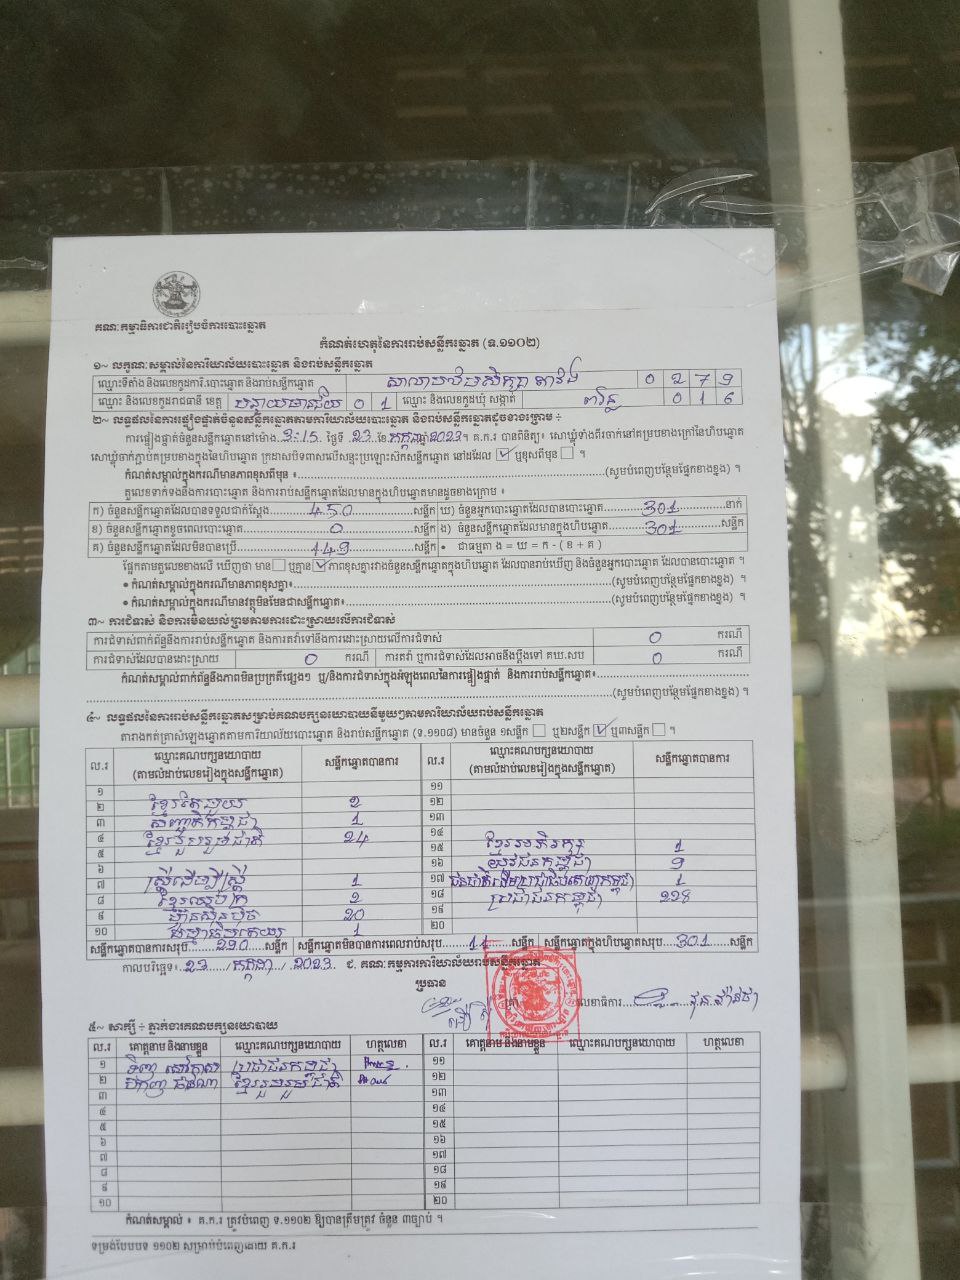 គណៈកម្មាធិការជាតិរៀបចំការបោះឆ្នោត
កំណត់ហេតុនៃការរាប់សន្លឹកឆ្នោត (ទ.១១០២)
១~ លក្ខណៈសម្គាល់នៃការិយាល័យបោះឆ្នោត និងរាប់សន្លឹកឆ្នោត
ឈ្មោះទីតាំង និងលេខកូដការិ.បោះឆ្នោត និងរាប់សន្លឹកឆ្នោត 0 2 7 9
ឈ្មោះ និងលេខកូដរាជធានី ខេត្ត បន្ទាយមានជ័យ 0 1 ឈ្មោះ និងលេខកូដឃុំ សង្កាត់ 0 1 6
២~ លទ្ធផលនៃការផ្ទៀងផ្ទាត់ចំនួនសន្លឹកឆ្នោតតាមការិយាល័យបោះឆ្នោត និងរាប់សន្លឹកឆ្នោតដូចខាងក្រោម ÷
ការផ្ទៀងផ្ទាត់ចំនួនសន្លឹកឆ្នោតនៅម៉ោង 3:15 ថ្ងៃទី 23 ខែ កក្កដា ឆ្នាំ 2023 ។ គ.ក.រ បានពិនិត្យ៖ សោឃ្លុំទាំងពីរចាក់នៅគម្របខាងក្រៅនៃហិបឆ្នោត
សោឃ្លុំចាក់ភ្ជាប់គម្របខាងក្នុងនៃហិបឆ្នោត ក្រដាសបិទពាសលើសន្ទះប្រឡោះសិកសន្លឹកឆ្នោត នៅដដែល ☑ ឬខុសពីមុន ☐ ។
កំណត់សម្គាល់ក្នុងករណីមានភាពខុសពីមុន ៖ (សូមបំពេញបន្ថែមផ្នែកខាងខ្នង) ។
តួលេខទាក់ទងនឹងការបោះឆ្នោត និងការរាប់សន្លឹកឆ្នោតដែលមានក្នុងហិបឆ្នោតមានដូចខាងក្រោម ៖
ក) ចំនួនសន្លឹកឆ្នោតដែលបានទទួលជាក់ស្ដែង 450 សន្លឹក ឃ) ចំនួនអ្នកបោះឆ្នោតដែលបានបោះឆ្នោត 301 នាក់
ខ) ចំនួនសន្លឹកឆ្នោតខូចពេលបោះឆ្នោត 0 សន្លឹក ង) ចំនួនសន្លឹកឆ្នោតដែលមានក្នុងហិបឆ្នោត 301 សន្លឹក
គ) ចំនួនសន្លឹកឆ្នោតដែលមិនបានប្រើ 149 សន្លឹក • ជាធម្មតា ង = ឃ = ក - ( ខ + គ )
ផ្អែកតាមតួលេខខាងលើ ឃើញថា មាន ☐ ឬគ្មាន ☑ ភាពខុសគ្នារវាងចំនួនសន្លឹកឆ្នោតក្នុងហិបឆ្នោត ដែលបានរាប់ឃើញ និងចំនួនអ្នកបោះឆ្នោត ដែលបានបោះឆ្នោត ។
• កំណត់សម្គាល់ក្នុងករណីមានភាពខុសគ្នា៖ (សូមបំពេញបន្ថែមផ្នែកខាងខ្នង) ។
• កំណត់សម្គាល់ក្នុងករណីមានវត្ថុមិនមែនជាសន្លឹកឆ្នោត៖ (សូមបំពេញបន្ថែមផ្នែកខាងខ្នង) ។
៣~ ការជំទាស់ និងការមិនយល់ព្រមតាមការដោះស្រាយលើការជំទាស់
ការជំទាស់ពាក់ព័ន្ធនឹងការរាប់សន្លឹកឆ្នោត និងការតវ៉ាទៅនឹងការដោះស្រាយលើការជំទាស់ 0 ករណី
ការជំទាស់ដែលបានដោះស្រាយ 0 ករណី ការតវ៉ា ឬការជំទាស់ដែលអាចនឹងប្ដឹងទៅ គឃ.សប 0 ករណី
កំណត់សម្គាល់ពាក់ព័ន្ធនឹងភាពមិនប្រក្រតីផ្សេងៗ ឬ/និងការជំទាស់ក្នុងអំឡុងពេលនៃការផ្ទៀងផ្ទាត់ និងការរាប់សន្លឹកឆ្នោត៖
(សូមបំពេញបន្ថែមផ្នែកខាងខ្នង) ។
៤~ លទ្ធផលនៃការរាប់សន្លឹកឆ្នោតសម្រាប់គណបក្សនយោបាយនីមួយៗតាមការិយាល័យរាប់សន្លឹកឆ្នោត
តារាងកត់ត្រាសំឡេងឆ្នោតតាមការិយាល័យបោះឆ្នោត និងរាប់សន្លឹកឆ្នោត (ទ.១១០៨) មានចំនួន ១សន្លឹក ☐ ឬ២សន្លឹក ☑ ឬ៣សន្លឹក ☐ ។
ល.រ ឈ្មោះគណបក្សនយោបាយ (តាមលំដាប់លេខរៀងក្នុងសន្លឹកឆ្នោត) សន្លឹកឆ្នោតបានការ ល.រ ឈ្មោះគណបក្សនយោបាយ (តាមលំដាប់លេខរៀងក្នុងសន្លឹកឆ្នោត) សន្លឹកឆ្នោតបានការ
១ ១១
២ 2 ១២
៣ 1 ១៣
៤ ខ្មែររួបរួមជាតិ 24 ១៤
៥ ១៥ ខ្មែរអភិរក្ស 1
៦ ១៦ យុវជនកម្ពុជា 9
៧ ស្រ្តីដើម្បីស្រ្តី 1 ១៧ 1
៨ 2 ១៨ ប្រជាជនកម្ពុជា 228
៩ ហ៊្វុនស៊ិនប៉ិច 20 ១៩
១០ 1 ២០
សន្លឹកឆ្នោតបានការសរុប 290 សន្លឹក សន្លឹកឆ្នោតមិនបានការពេលរាប់សរុប 11 សន្លឹក សន្លឹកឆ្នោតក្នុងហិបឆ្នោតសរុប 301 សន្លឹក
កាលបរិច្ឆេទ៖ 23 / កក្កដា / 2023 ជ. គណៈកម្មការការិយាល័យរាប់សន្លឹកឆ្នោត
ប្រធាន លេខាធិការ
៥~ សាក្សី ÷ ភ្នាក់ងារគណបក្សនយោបាយ
ល.រ គោត្តនាម និងនាមខ្លួន ឈ្មោះគណបក្សនយោបាយ ហត្ថលេខា ល.រ គោត្តនាម និងនាមខ្លួន ឈ្មោះគណបក្សនយោបាយ ហត្ថលេខា
១ ប្រជាជនកម្ពុជា ១១
២ ខ្មែររួបរួមជាតិ ១២
៣ ១៣
៤ ១៤
៥ ១៥
៦ ១៦
៧ ១៧
៨ ១៨
៩ ១៩
១០ ២០
កំណត់សម្គាល់ ៖ គ.ក.រ ត្រូវបំពេញ ទ.១១០២ ឱ្យបានត្រឹមត្រូវ ចំនួន ៣ច្បាប់ ។
ទម្រង់បែបបទ ១១០២ សម្រាប់បំពេញដោយ គ.ក.រ